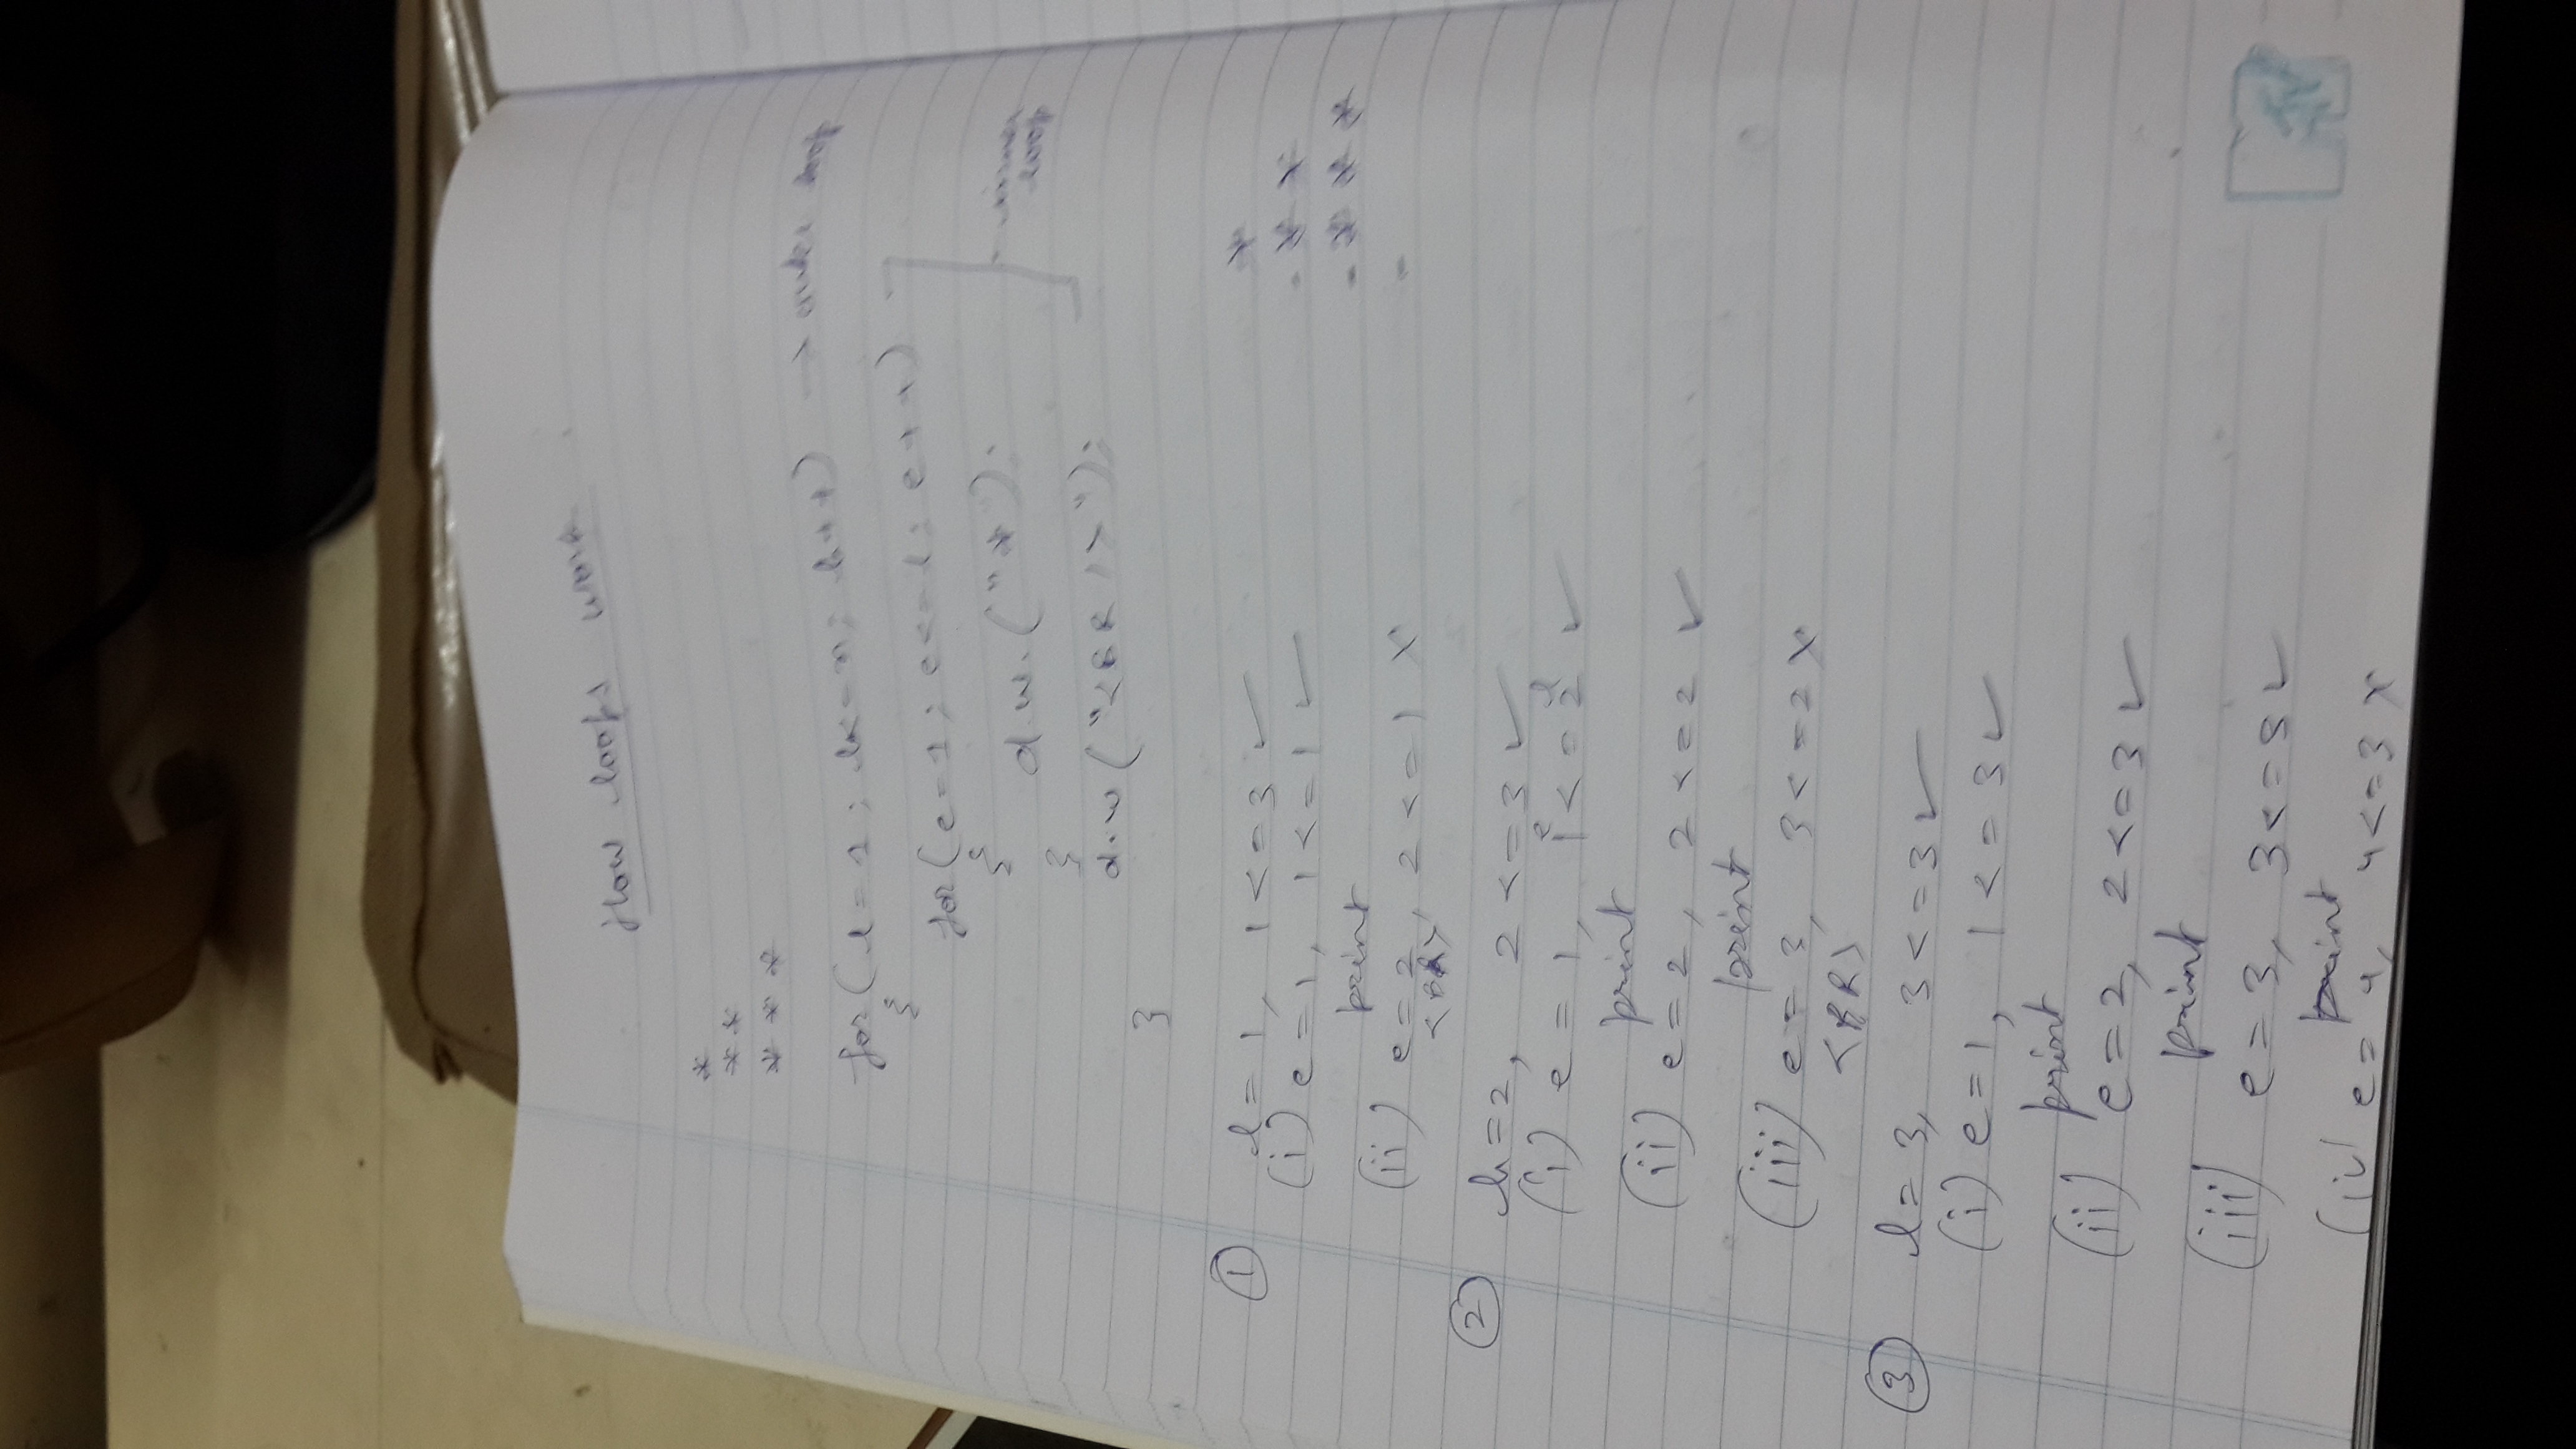 How loops work
*
* *
* * *
for ( l = 1 ; l <= n ; l++ ) → outer loop
{
for ( e = 1 ; e <= l ; e++ )
{
d.w. ( " * ) ;
inner
loop
}
d.w ( "<BR />" ) ;
}
① l = 1, 1 <= 3 ✓
*
(i) e = 1, 1 <= 1 ✓
- * *
print
- * * *
(ii) e = 2, 2 <= 1 X
-
<BR>
② l = 2, 2 <= 3 ✓
e l
(i) e = 1, 1 <= 2 ✓
print
(ii) e = 2, 2 <= 2 ✓
print
(iii) e = 3, 3 <= 2 X
<BR>
③ l = 3, 3 <= 3 ✓
(i) e = 1, 1 <= 3 ✓
print
(ii) e = 2, 2 <= 3 ✓
print
(iii) e = 3, 3 <= 3 ✓
print
(iv) e = 4, 4 <= 3 X